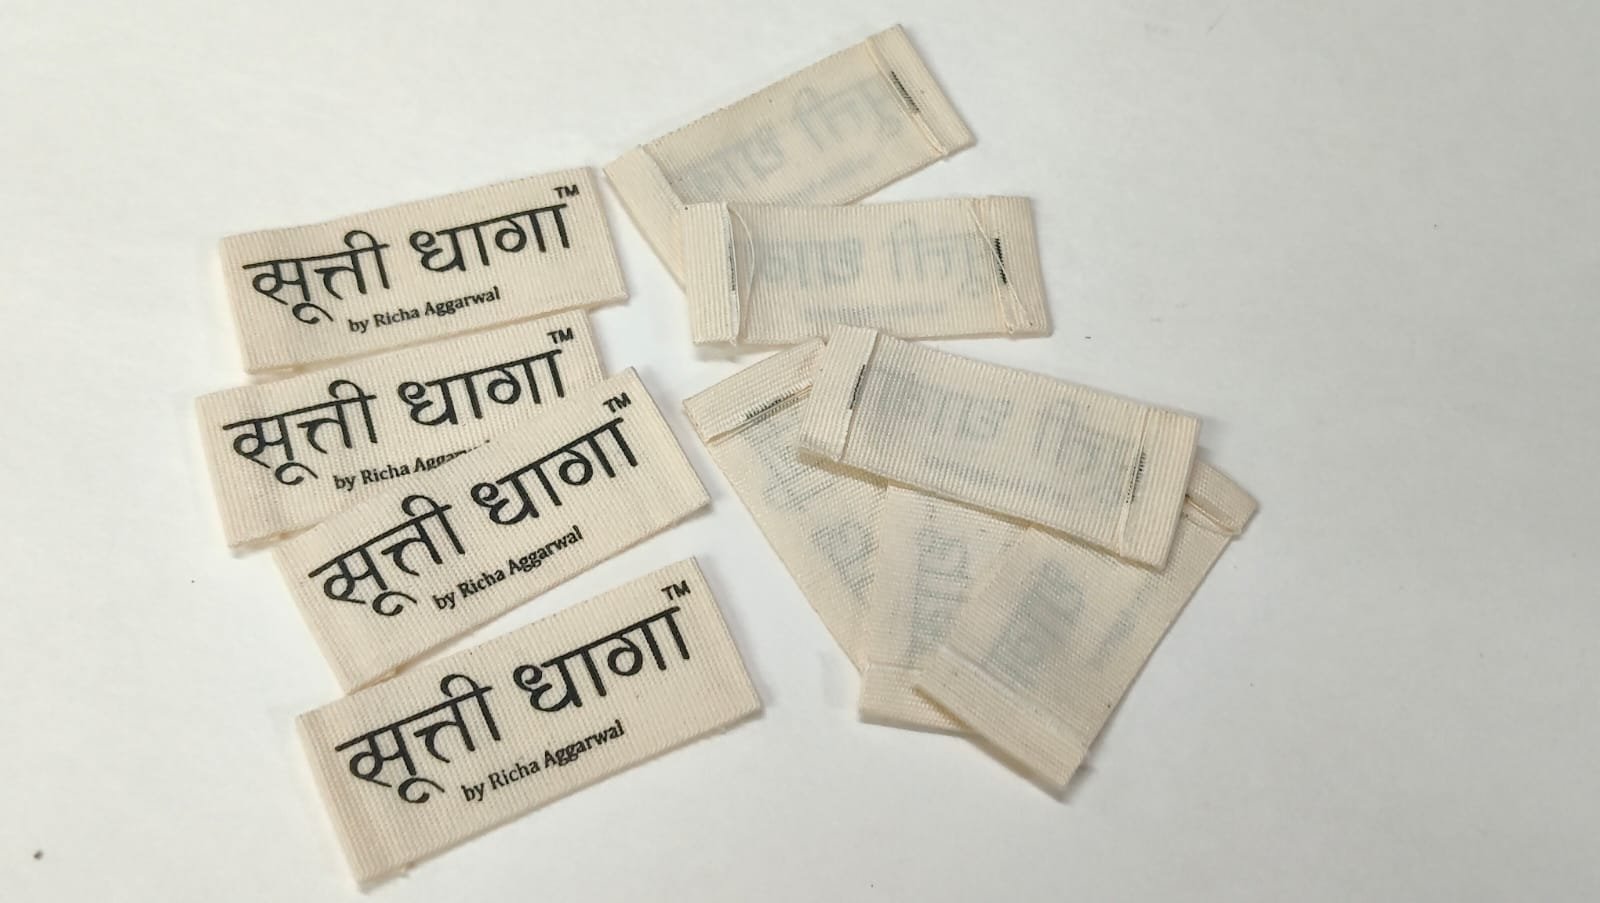 सूत्ती धागा™
by Richa Aggarwal
सूत्ती धागा™
by Richa
सूत्ती धागा™
by Richa Aggarwal
सूत्ती धागा™
by Richa Aggarwal